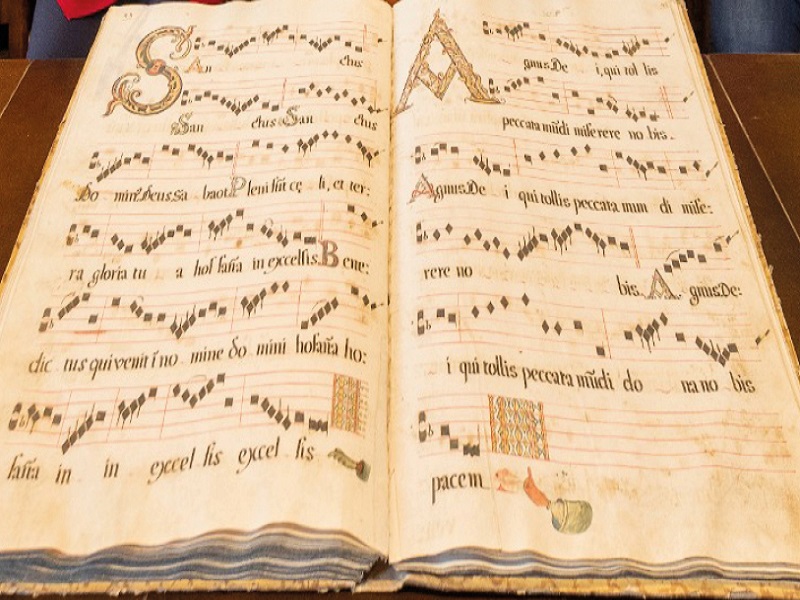 San ctus
San ctus San ctus
Do mine Deus Sa baot Pleni sūt cę li, et ter:
ra gloria tu a hos sana in excelsis. Bene:
dic tus qui venit i no mine do mini hosāna ho:
saña in in excel sis excel sis
Agnus De i, qui tol lis
peccata mūdi miserere no bis.
Agnus De i qui tollis peccata mun di mise:
rere no bis. Agnus De:
i qui tollis peccata mūdi do na no bis
pacem